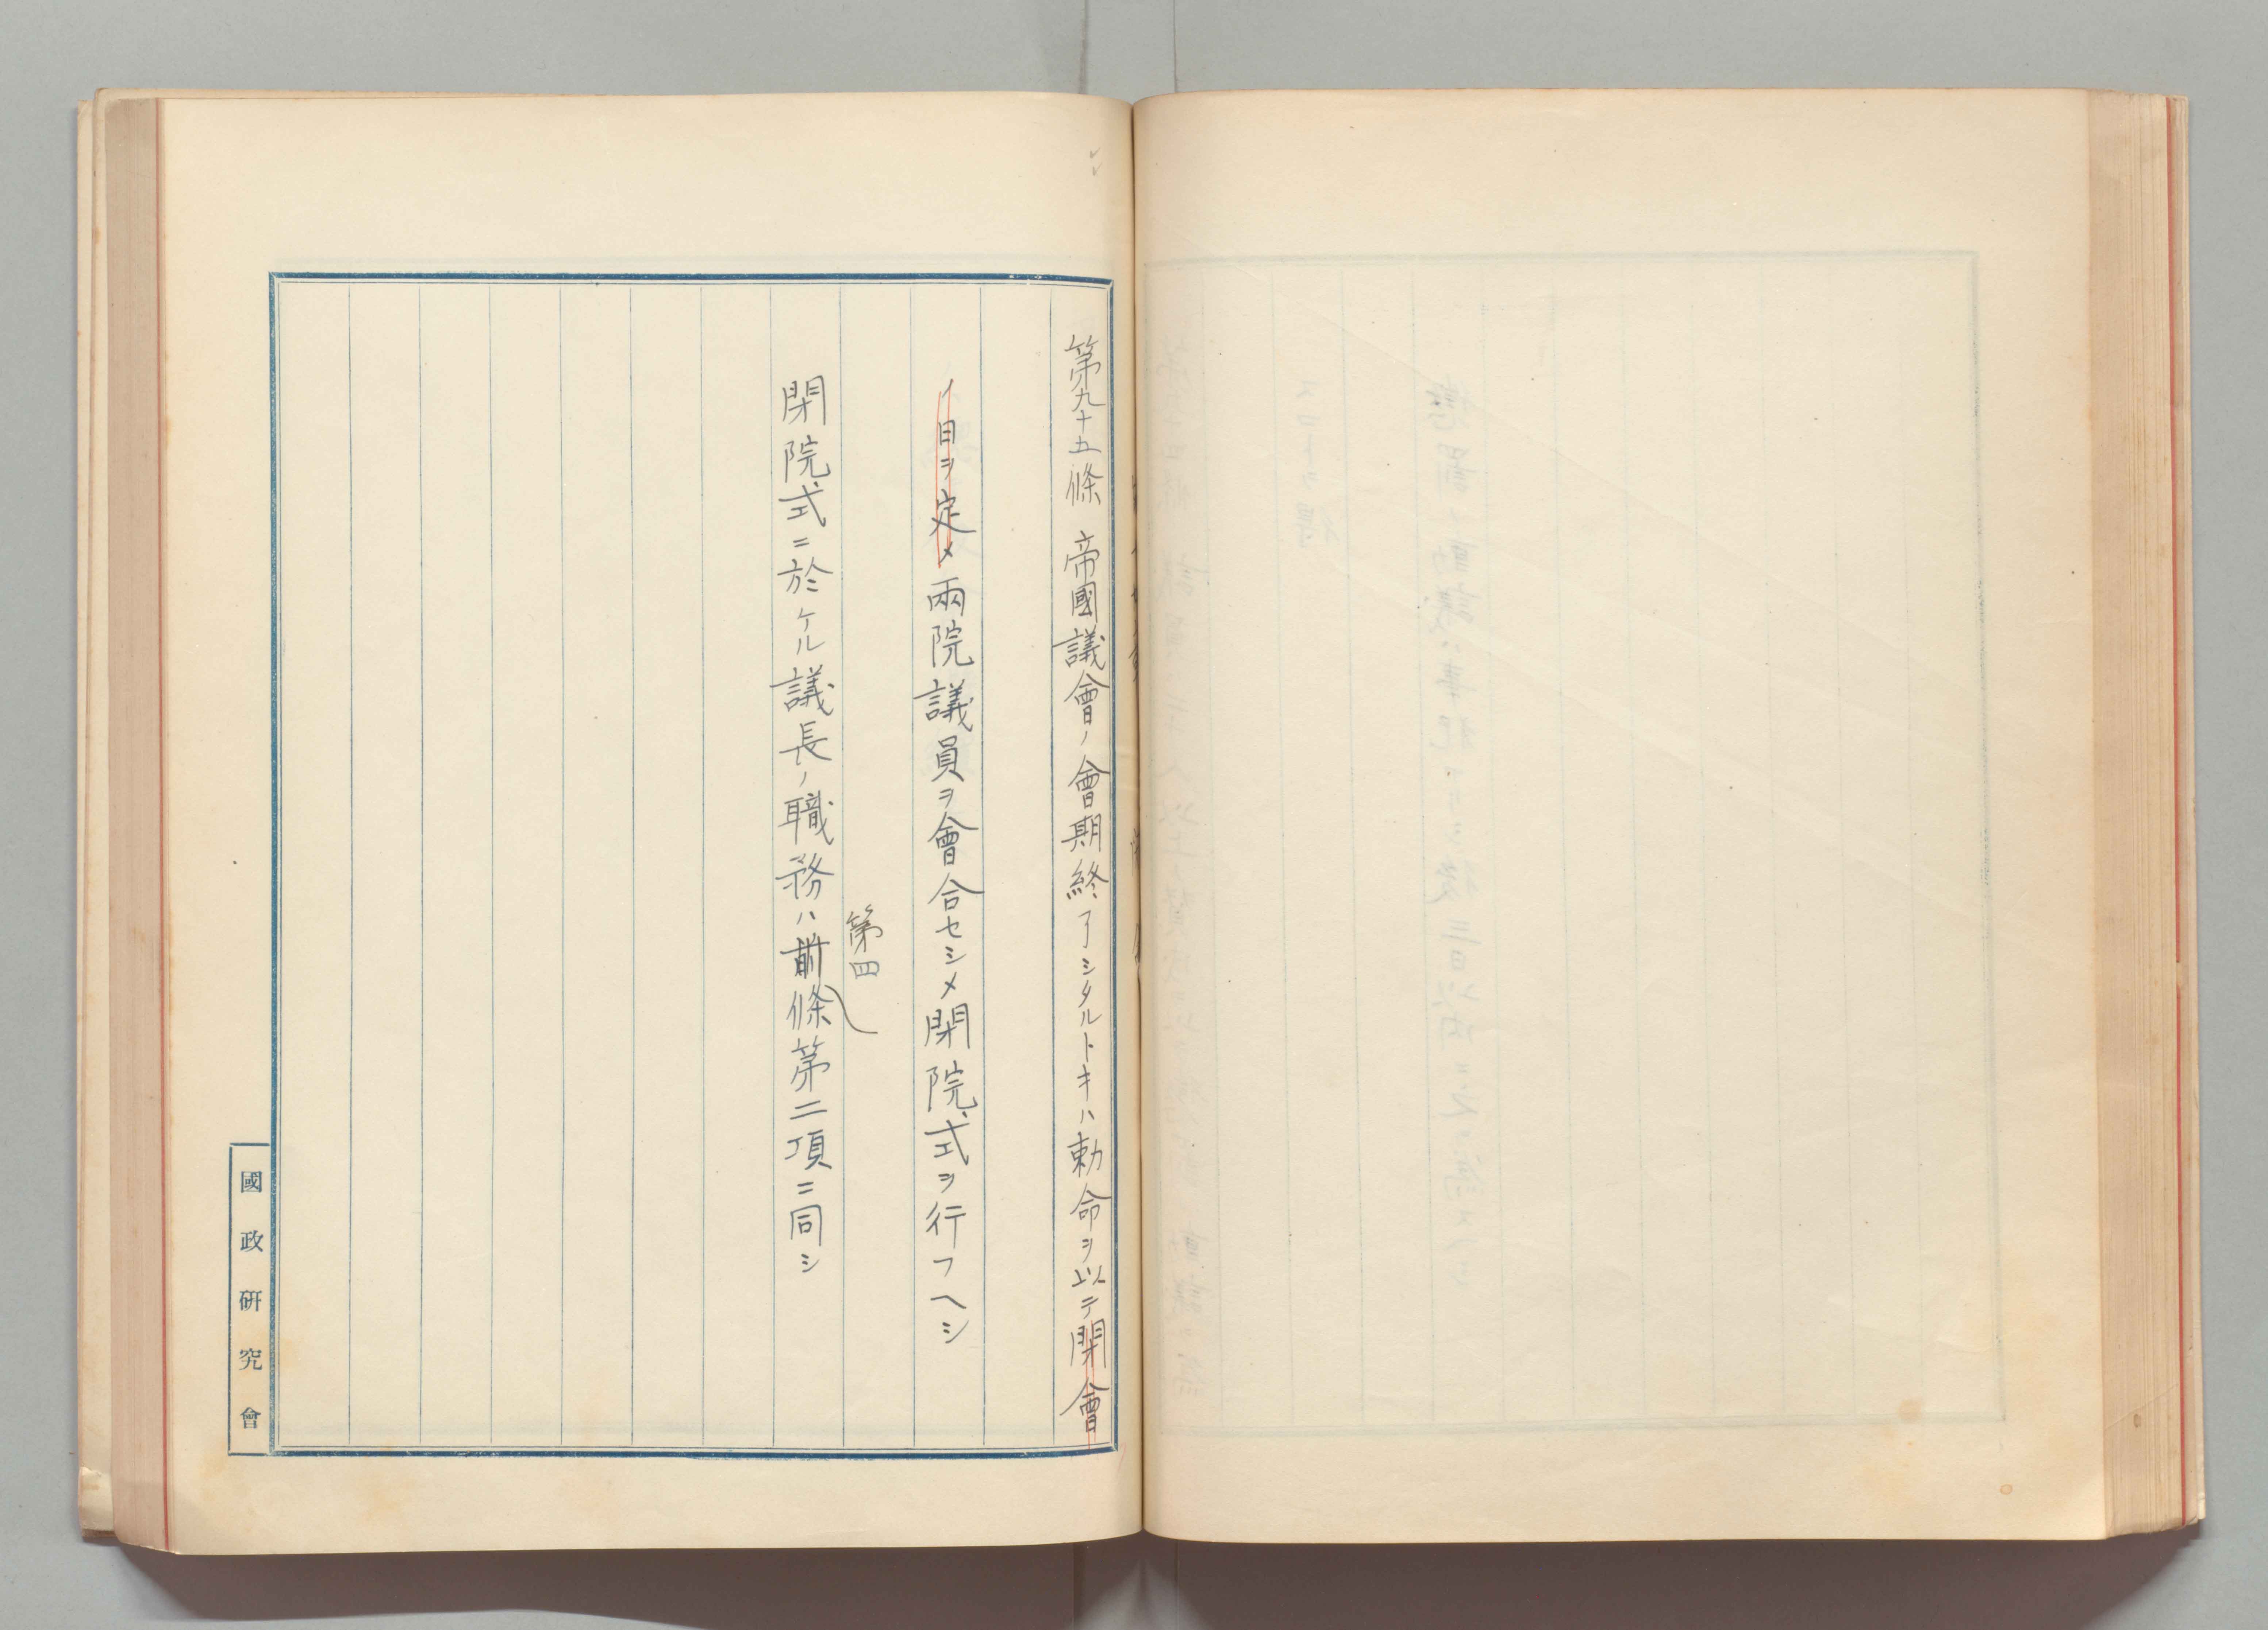 第九十五條 帝國議會ノ會期終了シタルトキハ勅命ヲ以テ閉會
ノ日ヲ定メ兩院議員ヲ會合セシメ閉院式ヲ行フヘシ
第四
閉院式ニ於ケル議長ノ職務ハ前條第二項ニ同シ
國政研究會